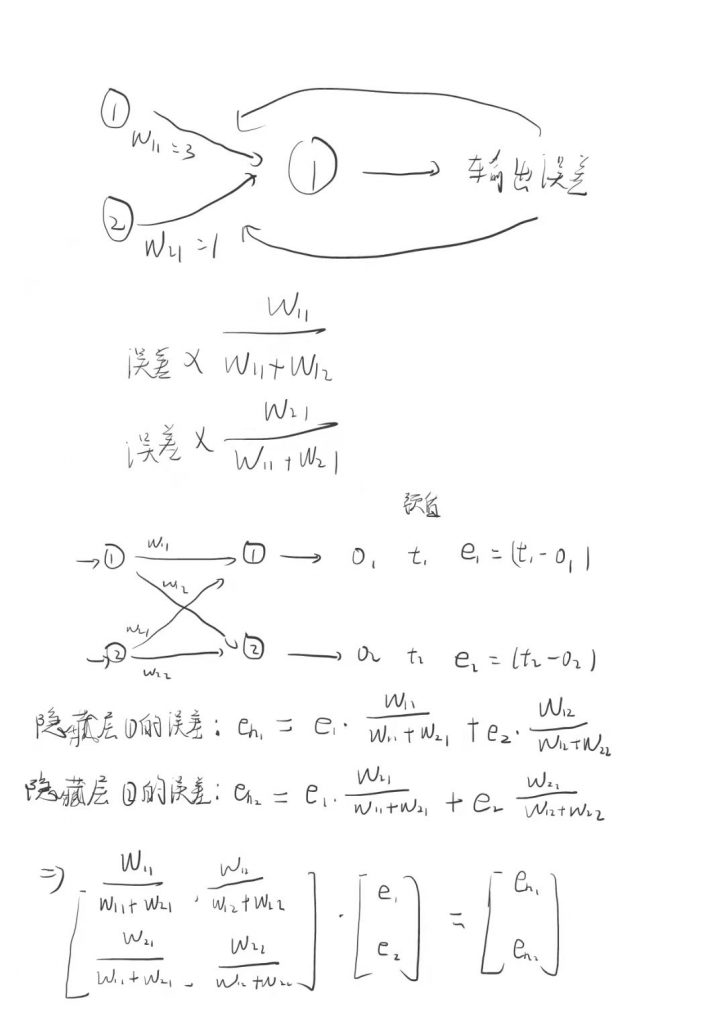 ① W₁₁=3
① → 输出误差
② W₂₁=1
误差 × W₁₁ / (W₁₁+W₁₂)
误差 × W₂₁ / (W₁₁+W₂₁)
→① W₁₁ ① → O₁ t₁ e₁=(t₁-O₁)
W₁₂
W₂₁
→② W₂₂ ② → O₂ t₂ e₂=(t₂-O₂)
隐藏层①的误差: eₕ₁ = e₁· W₁₁ / (W₁₁+W₂₁) + e₂· W₁₂ / (W₁₂+W₂₂)
隐藏层②的误差: eₕ₂ = e₁· W₂₁ / (W₁₁+W₂₁) + e₂ W₂₂ / (W₁₂+W₂₂)
⇒ [ W₁₁ / (W₁₁+W₂₁) , W₁₂ / (W₁₂+W₂₂) ] · [ e₁ ] = [ eₕ₁ ]
[ W₂₁ / (W₁₁+W₂₁) , W₂₂ / (W₁₂+W₂₂) ] [ e₂ ] [ eₕ₂ ]